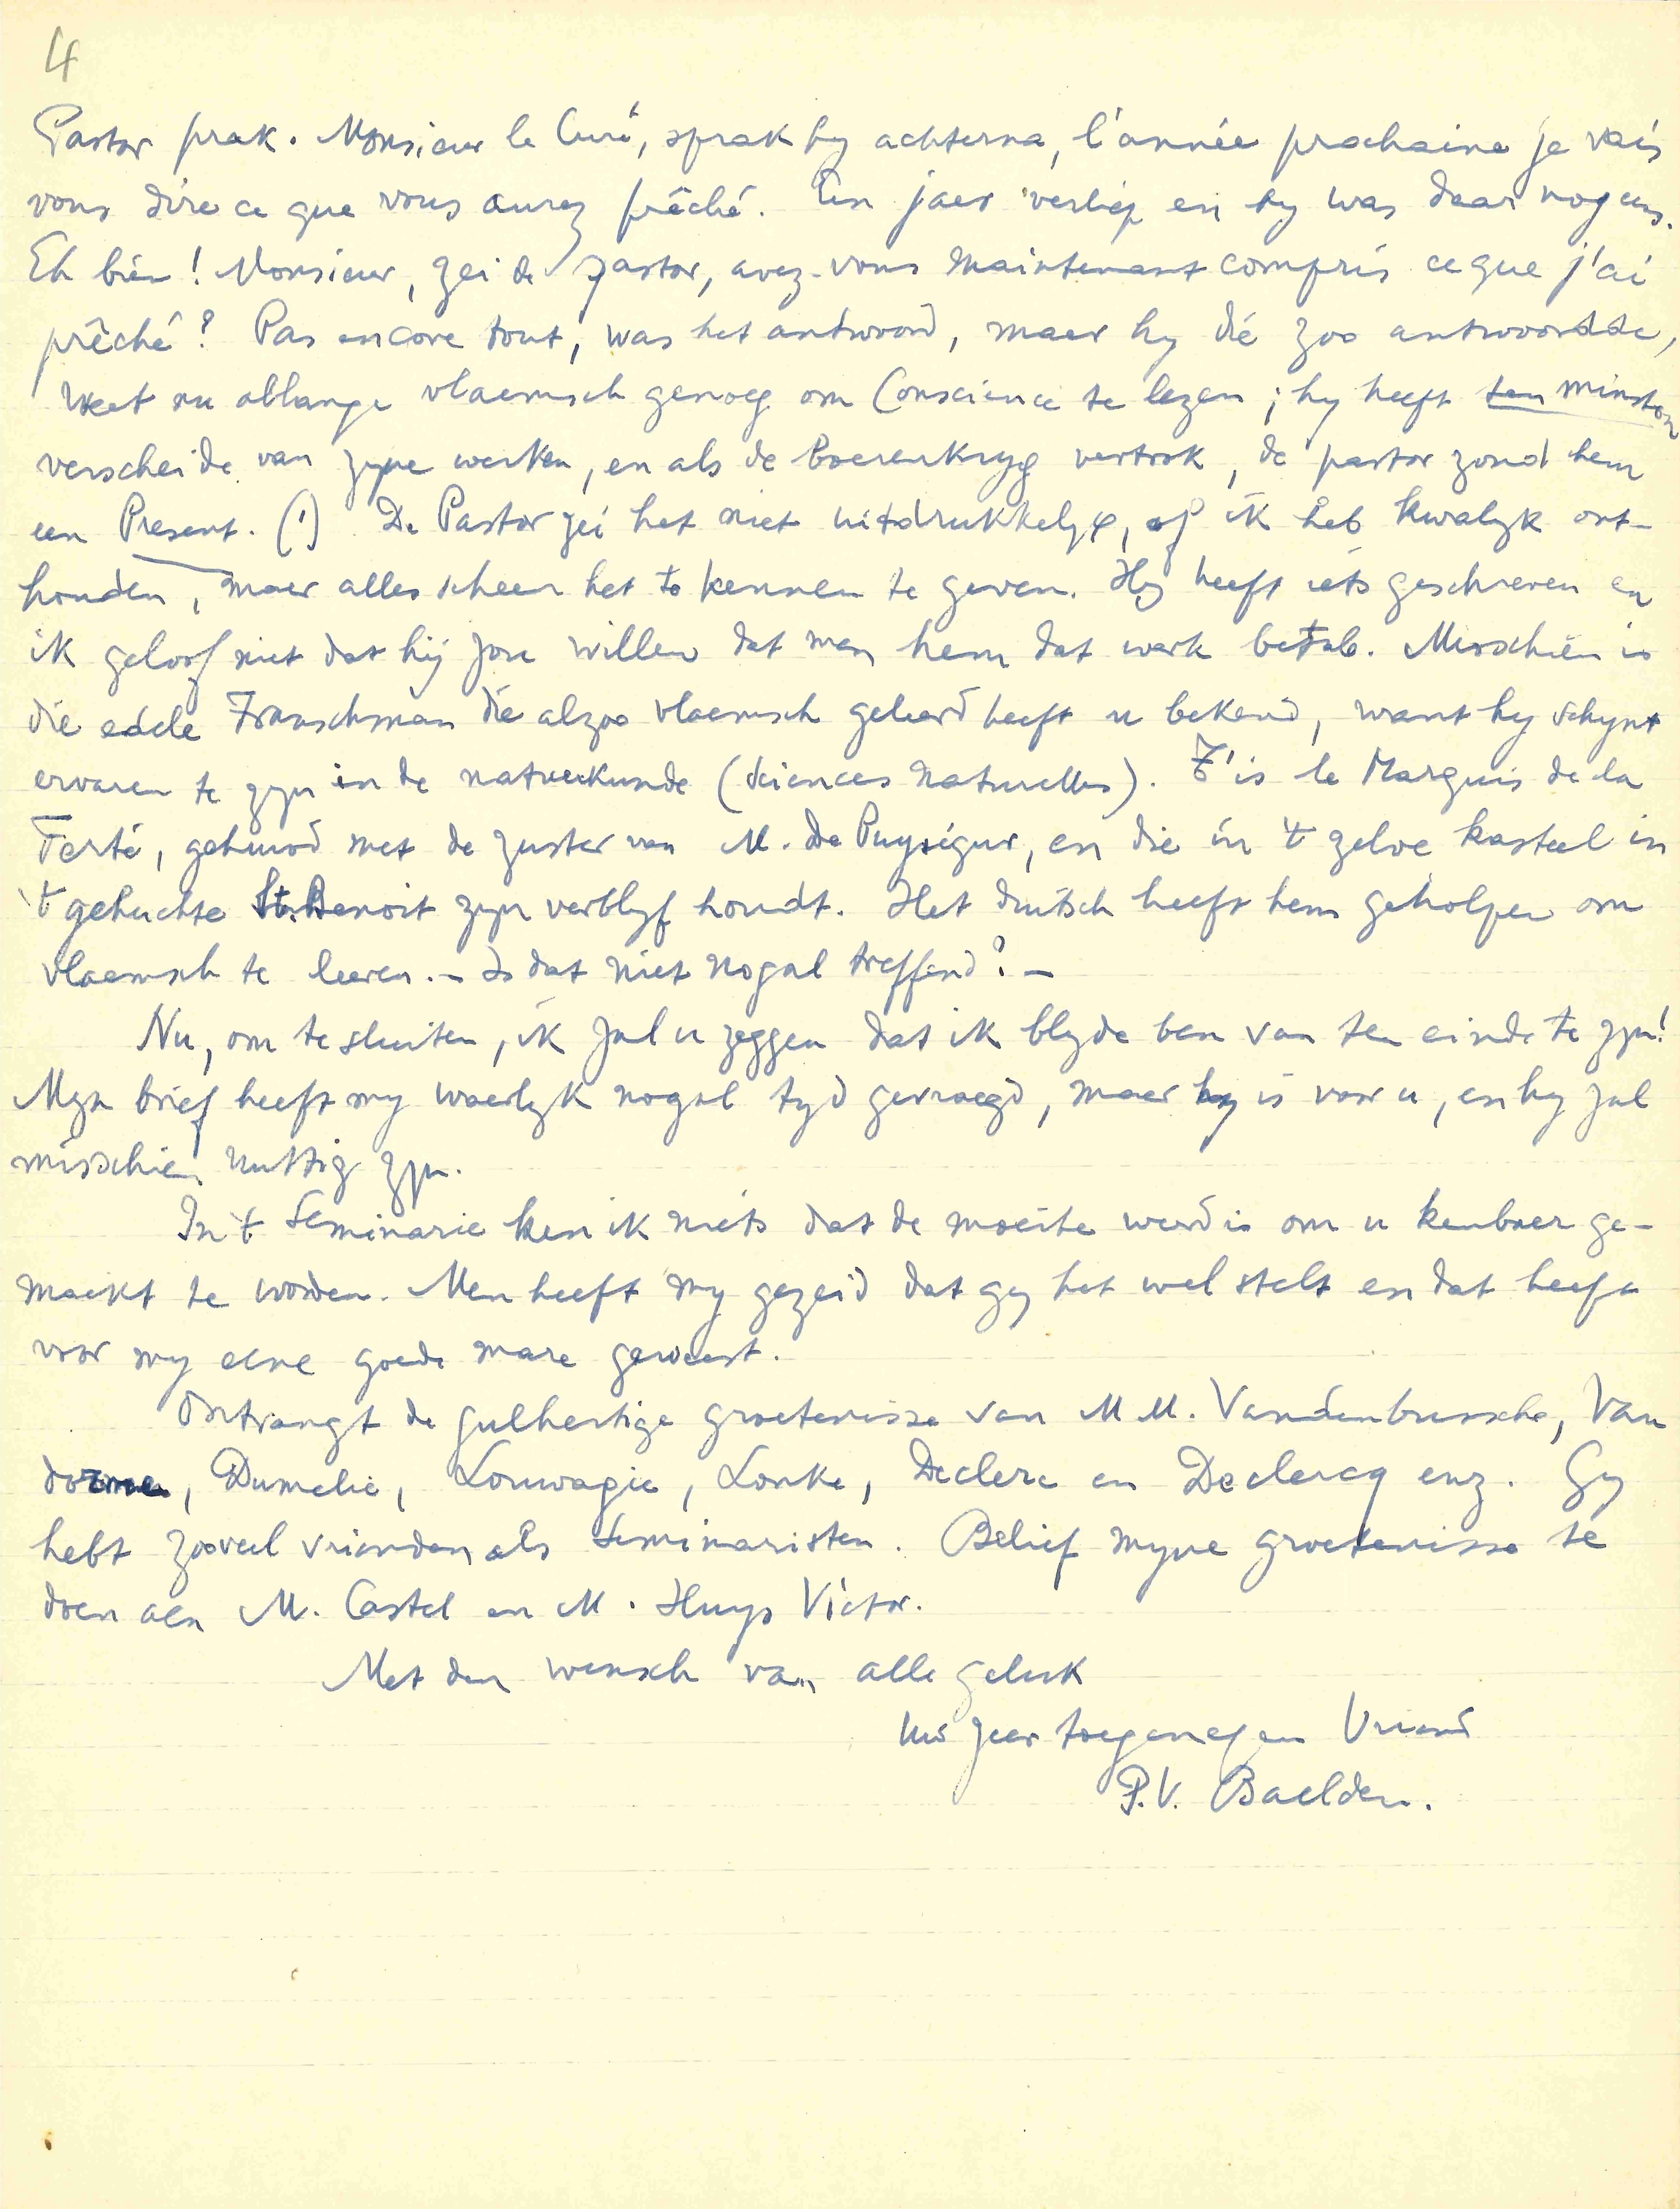 4
Pastor sprak. Monsieur le Curé, sprak hy achterna, l'année prochaine je vais
vous dire ce que vous aurez prêché. Een jaer verliep en hy was daar nog eens.
Eh bien! Monsieur, zei de pastor, avez-vous maintenant compris ce que j'ai
prêché? Pas encore tout, was het antwoord, maer hy die zoo antwoordde,
weet nu allange vlaemsch genoeg om Conscience te lezen; hy heeft ten minsten
verscheide van zyne werken, en als de boerenkryg vertrok, de pastor zond hem
een Present. (1) De Pastor zei het niet uitdrukkelyk, of ik heb kwalyk ont-
houden, maer alles scheen het te kennen te geven. Hy heeft iets geschreven en
ik geloof niet dat hij zou willen dat men hem dat werk betaele. Misschien is
die edele Franschman die alzoo vlaemsch geleerd heeft u bekend, want hy schynt
ervaren te zyn in de natuerkunde (sciences naturelles). 't is le Marquis de la
Ferté, gehuwd met de zuster van M. de Puységur, en die in 't zelve kasteel in
't gehuchte St. Benoit zyn verblyf houdt. Het duitsch heeft hem geholpen om
vlaemsch te leeren. – Is dat niet nogal treffend? –
Nu, om te sluiten, ik zal u zeggen dat ik blyde ben van ten einde te zyn!
Myn brief heeft my waerlyk nogal tyd gevraegd, maer hy is voor u, en hy zal
misschien nuttig zyn.
In 't Seminarie ken ik niets dat de moeite weerd is om u kenbaer ge-
maekt te worden. Men heeft my gezeid dat gy het wel stelt en dat heeft
voor my eene goede mare geweest.
Ontvangt de gulhertige groetenisse van M M. Vandenbussche, Van
dorme, Dumelie, Louwagie, Lonke, Declerc en Declercq enz. Gy
hebt zooveel vrienden als Seminaristen. Belief myne groetenisse te
doen aen M. Castel en M. Huys Victor.
Met den wensch van alle geluk
Uw zeer toegenegen Vriend
P.V. Baelden.